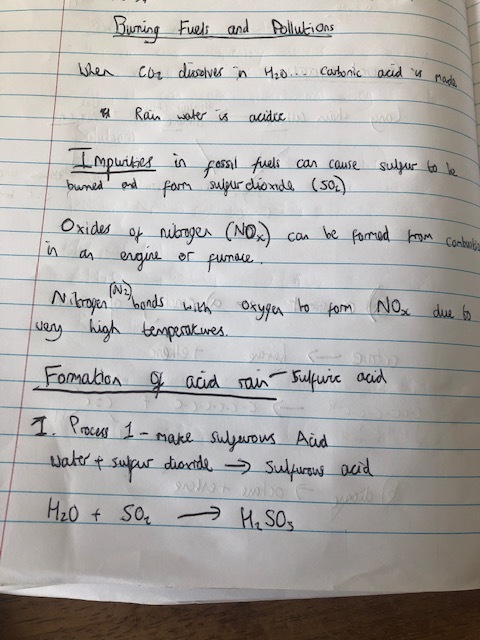 Burning Fuels and Pollutions
When CO2 dissolves in H2O... Carbonic acid is made
Rain water is acidic
Impurities in fossil fuels can cause sulfur to be
burned and form sulfur dioxide (SO2)
Oxides of nitrogen (NOx) can be formed from combustion
in an engine or furnace.
Nitrogen (N2) bonds with oxygen to form NOx due to
very high temperatures.
Formation of acid rain - Sulfuric acid
1. Process 1 - make sulfurous Acid
Water + sulfur dioxide → Sulfurous acid
H2O + SO2 → H2SO3